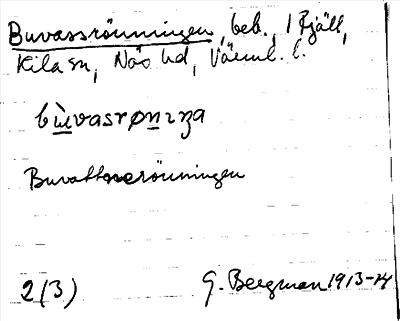 Buvassrönningen, beb., i Fjäll,
Kila sn, Näs hd, Värml. l.
bùvasrønıŋa
Buvattnerönningen
2(3) G. Bergman 1913-14